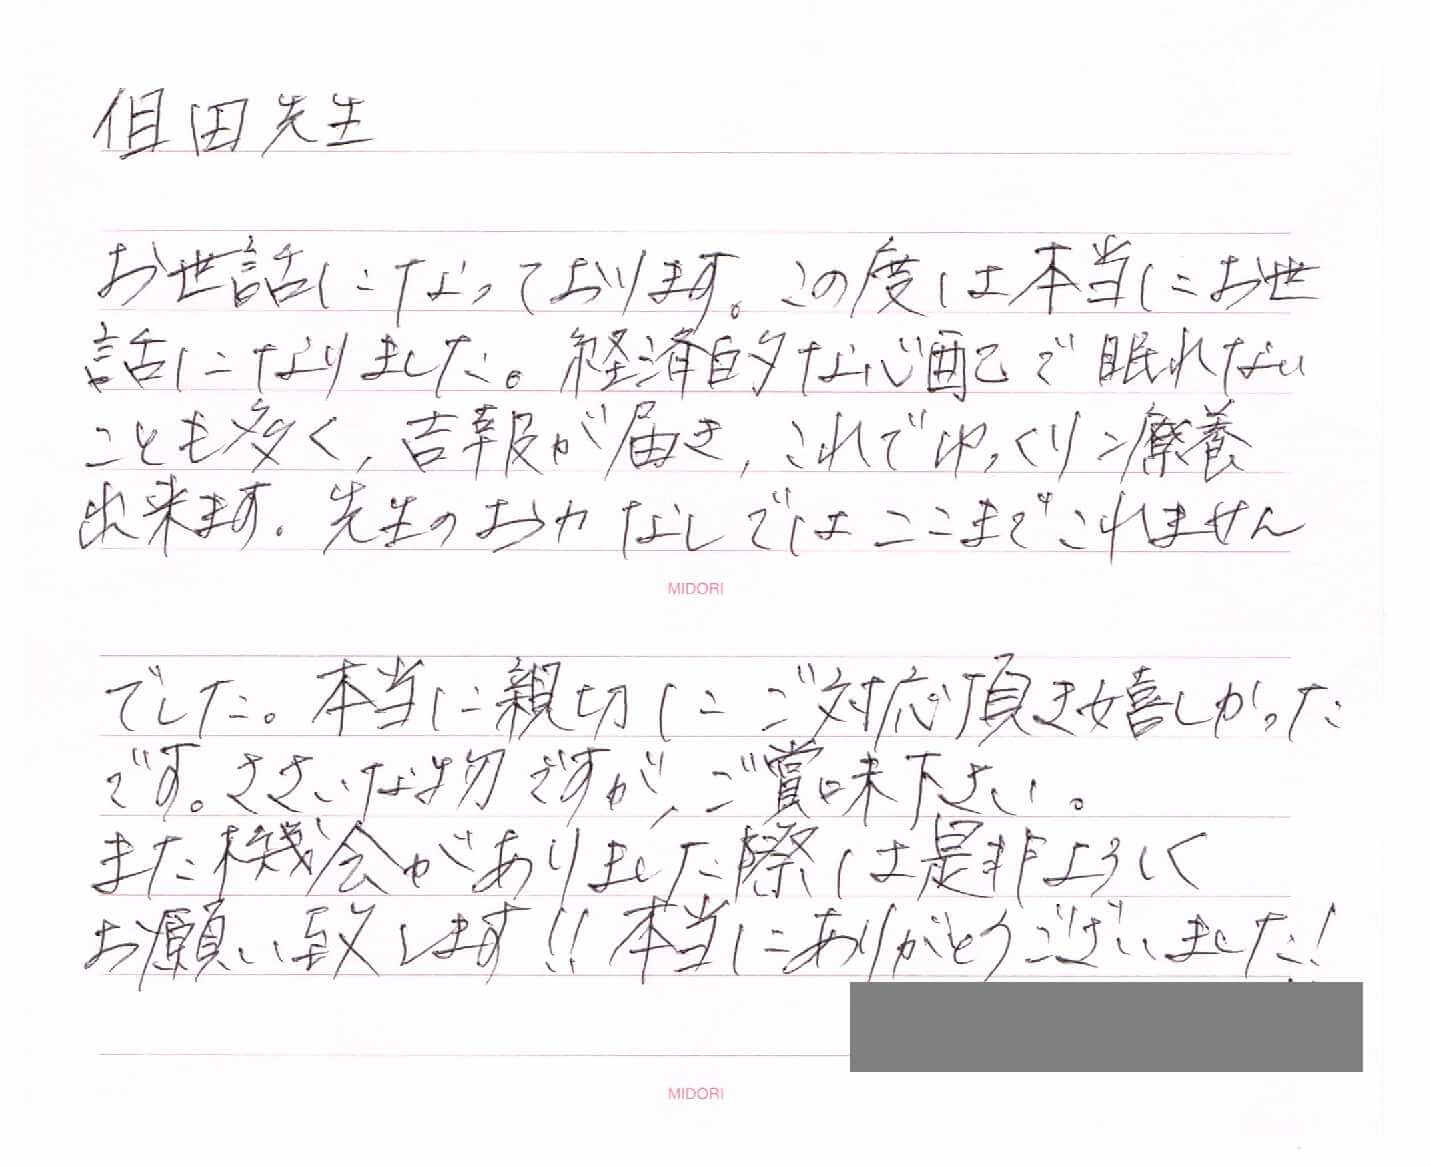 但田先生
お世話になっております。この度は本当にお世
話になりました。経済的な心配で眠れない
ことも多く、吉報が届き、これでゆっくり療養
出来ます。先生のお力なしではここまでこれません
MIDORI
でした。本当に親切にご対応頂き嬉しかった
です。ささいな物ですが、ご賞味下さい。
また機会がありました際は是非よろしく
お願い致します!!本当にありがとうございました!
MIDORI